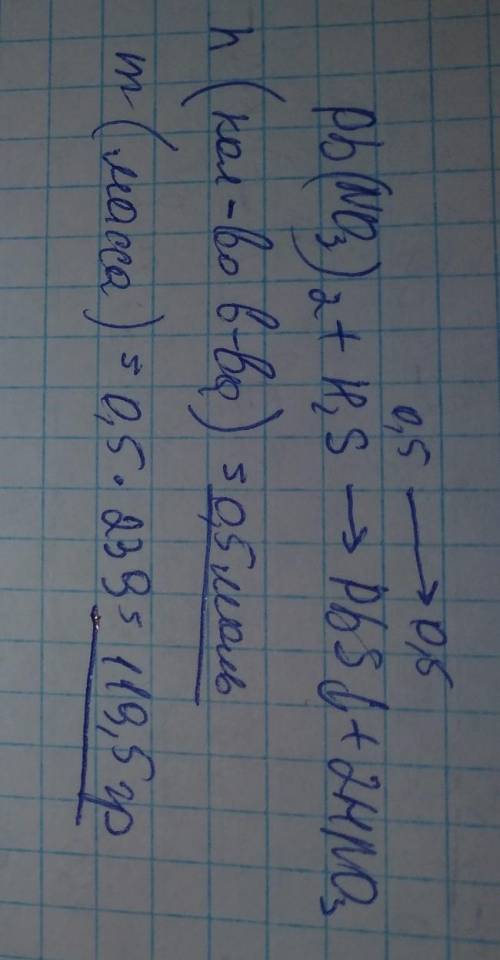 0,5 → 0,5
Pb(NO₃)₂ + H₂S → PbS↓ + 2HNO₃
n (кол-во в-ва) = 0,5 моль
m (масса) = 0,5 · 239 = 119,5 гр